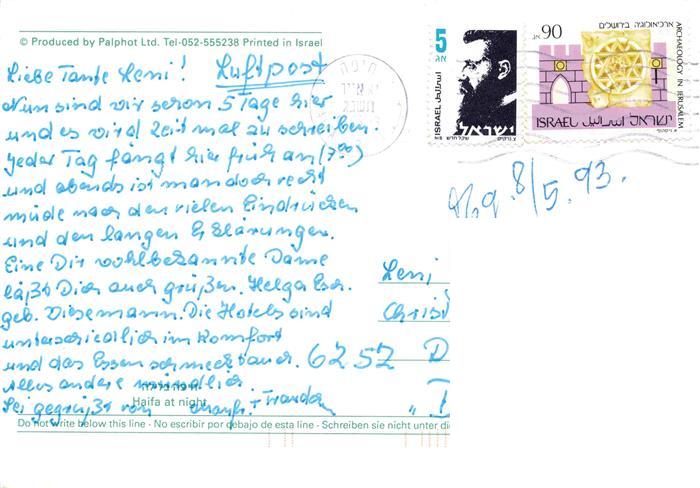 © Produced by Palphot Ltd. Tel-052-555238 Printed in Israel
Liebe Tante Leni! Luftpost
Nun sind wir schon 5 Tage hier
und es wird Zeit mal zu schreiben.
Jeder Tag fängt hier früh an (7⁰⁰)
und abends ist man doch recht
müde nach den vielen Eindrücken
und den langen Erklärungen.
Eine Dir wohlbekannte Dame
läßt Dich auch grüßen. Helga Esch.
geb. Diesemann. Die Hotels sind
unterschiedlich im Komfort
und das Essen schmeckt auch.
Alles andere mündlich.
Sei gegrüßt von
Haifa at night
Do not write below this line - No escribir por debajo de esta linea - Schreiben sie nicht unter di
חיפה
5
אג
ISRAEL اسرائيل
ישראל
90 אג
ארכיאולוגיה בירושלים
ARCHAEOLOGY IN JERUSALEM
ISRAEL اسرائيل ישראל
8/5.93.
Leni
Christ
6252 D